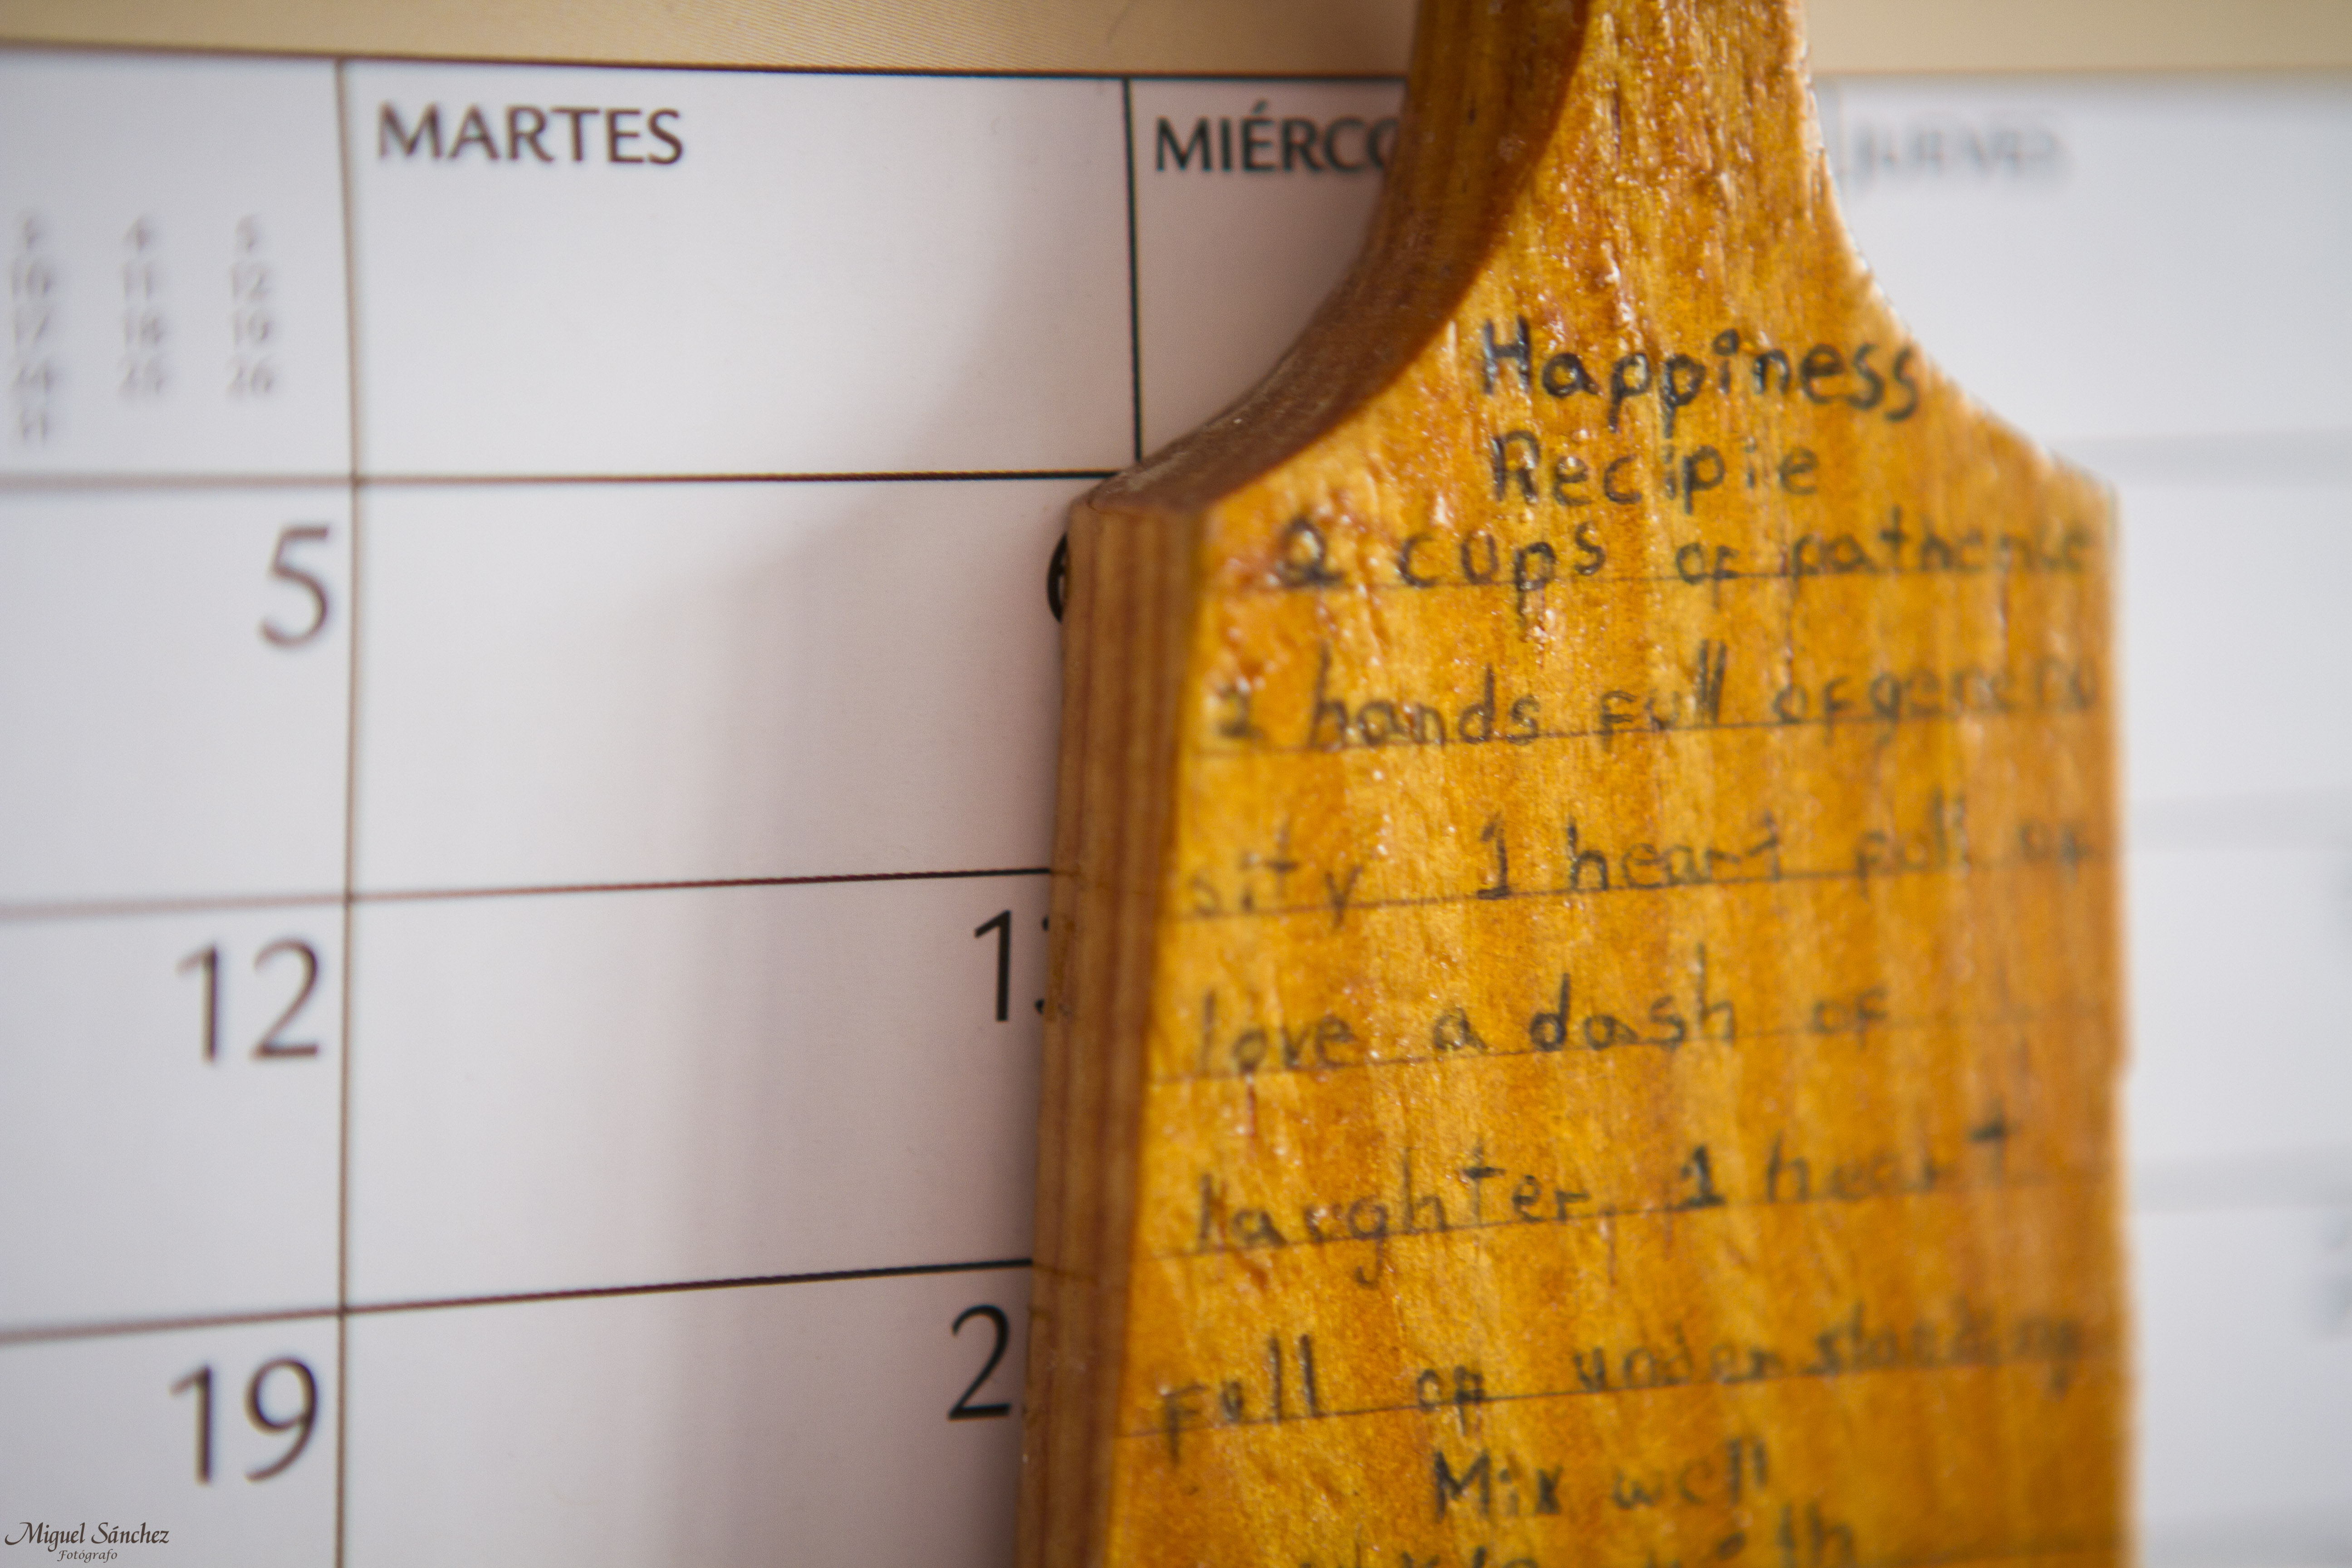 MARTES
MIÉRCO
JUEVES
3 4 5
10 11 12
17 18 19
24 25 26
31
5
12
1
19
2
Happiness
Recipie
2 cups of pathence
2 hands full of genero
sity 1 heart full of
love a dash of
laughter, 1 heart
full of understanding
Mix well
with
Miguel Sánchez
Fotógrafo